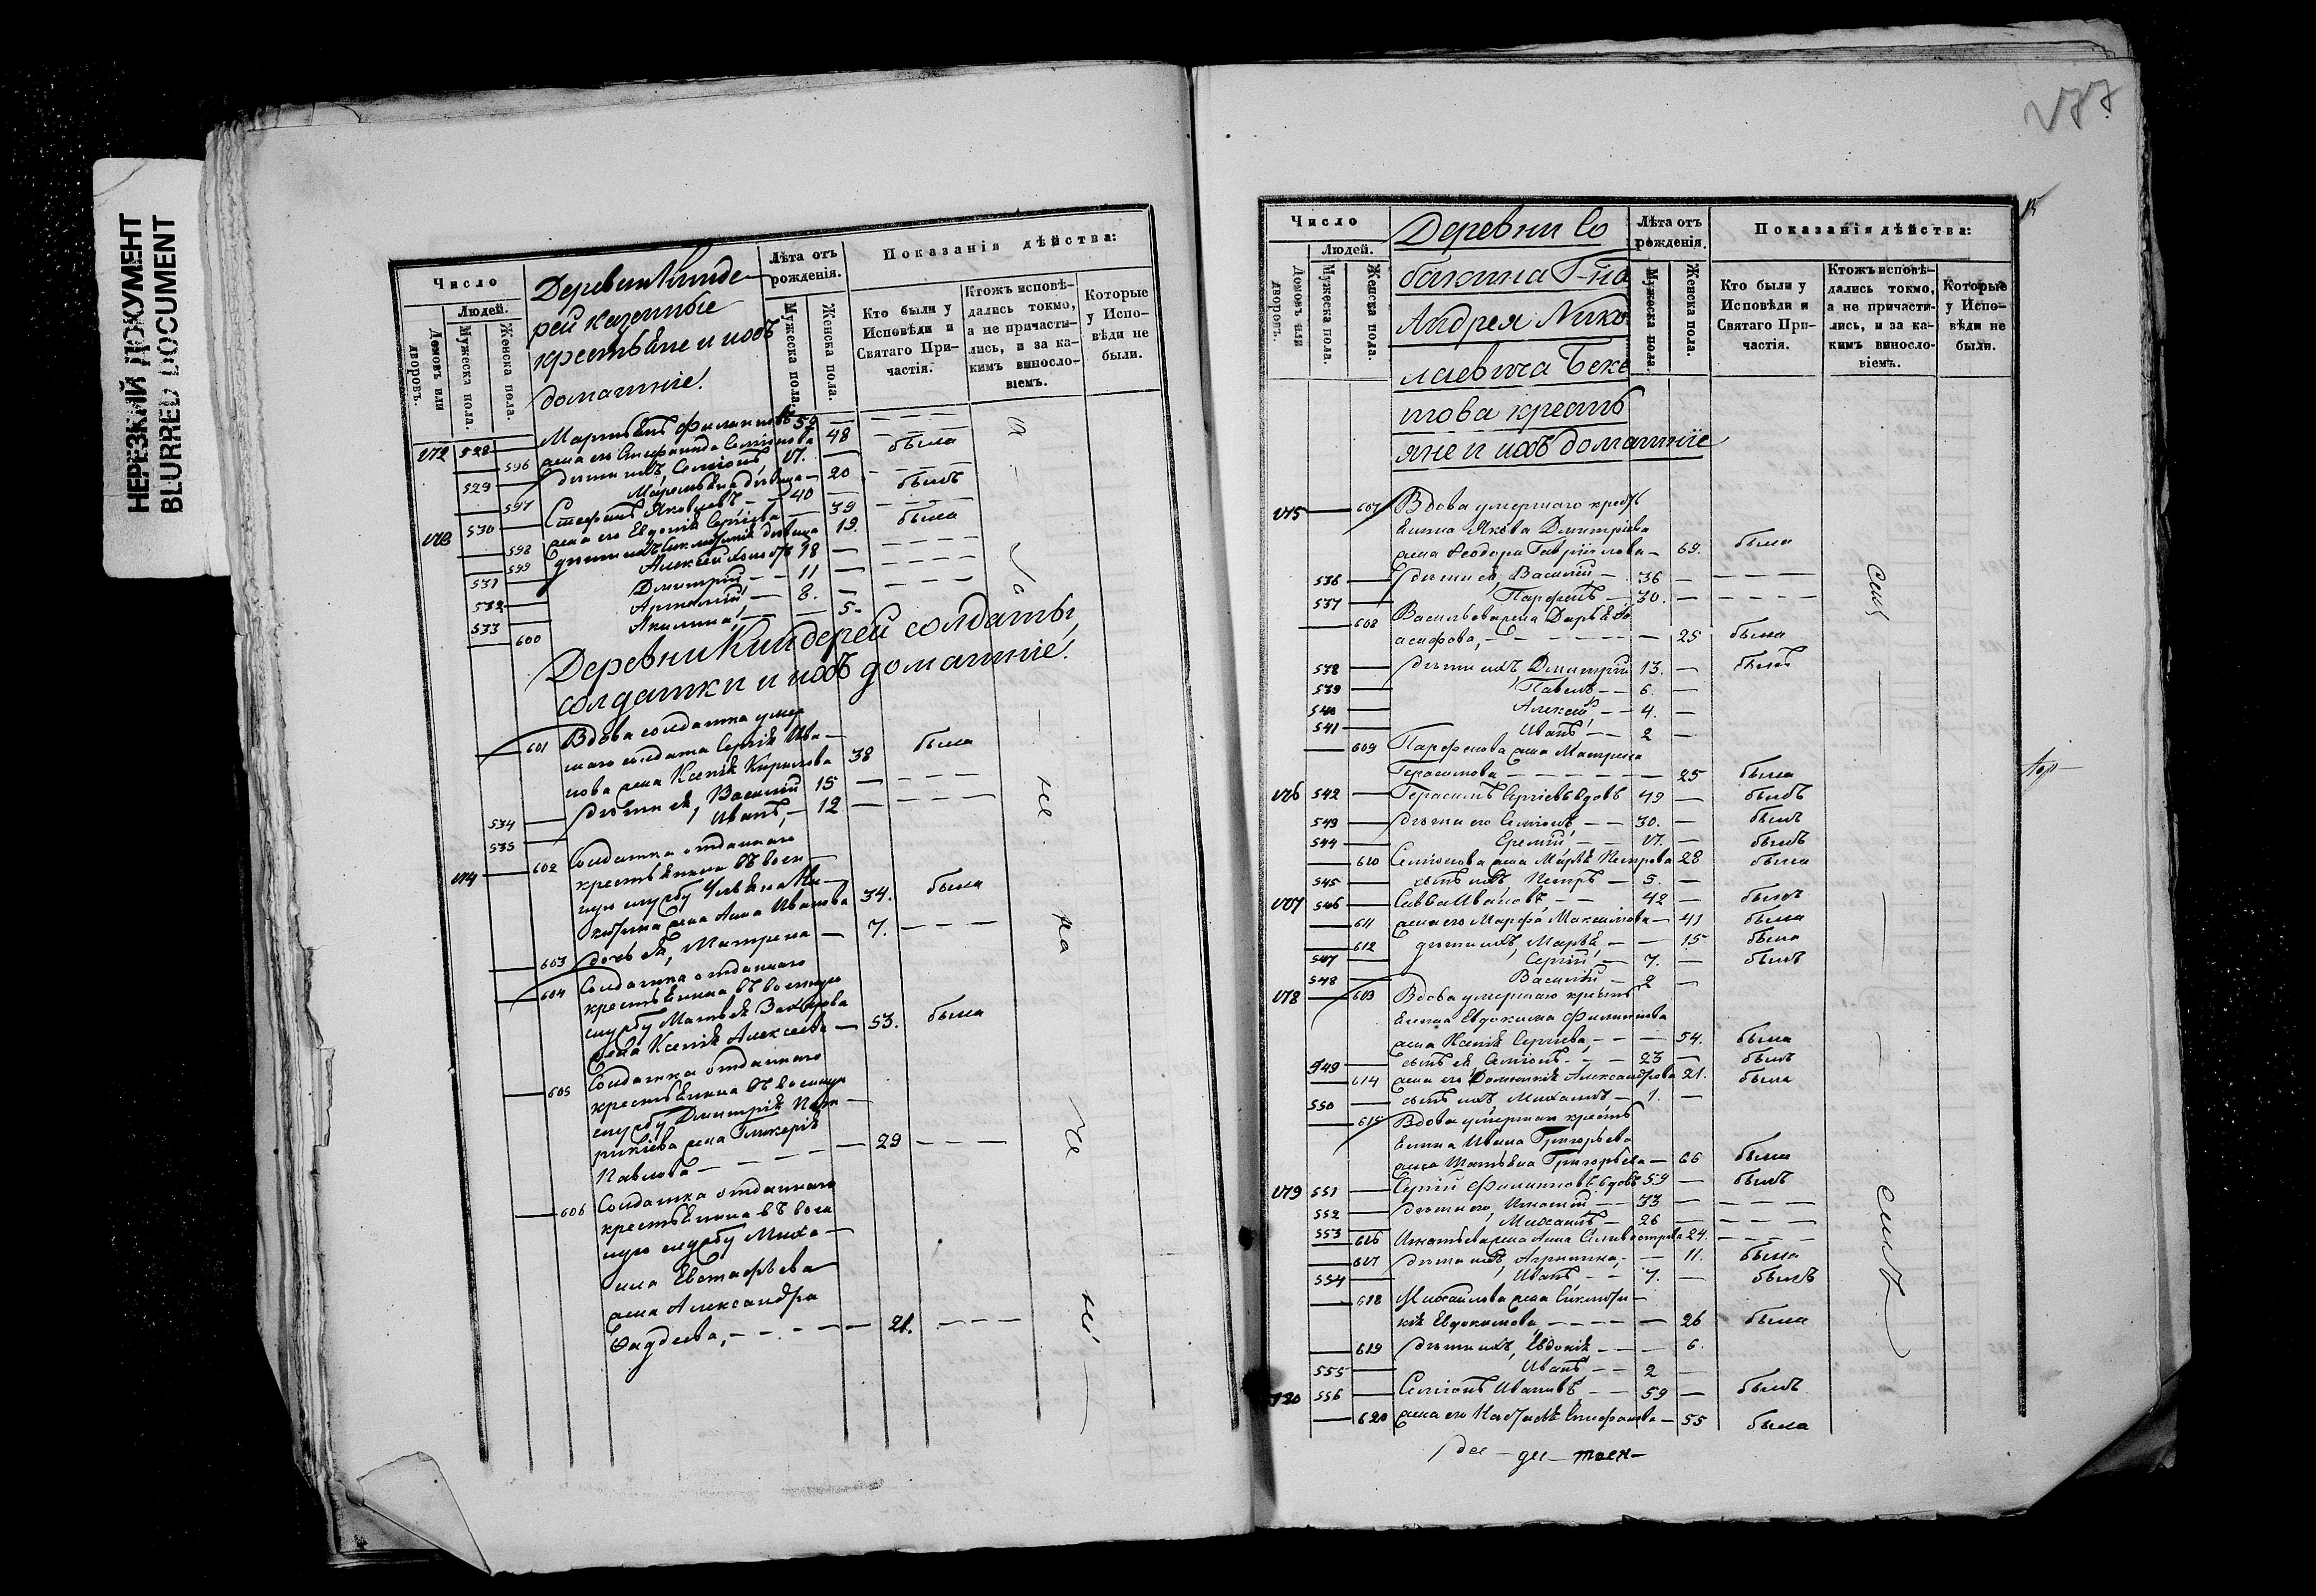 НЕРЕЗКИЙ ДОКУМЕНТ
BLURRED DOCUMENT
Число
Людей.
Домовъ или дворовъ.
Мужеска пола.
Женска пола.
Деревни Кинде
рей казенные
крестьяне и ихъ
домашніе.
Лѣта отъ рожденія.
Мужеска пола.
Женска пола.
Показанія дѣйства:
Кто были у Исповѣди и Святаго Причастія.
Ктожъ исповѣдались токмо, а не причастились, и за какимъ винословіемъ.
Которые у Исповѣди не были.
172 528 Мартынъ Филиповъ 59 —
596 жена его Степанида Семіонова 48 была
529 дѣти ихъ, Семіонъ, 17. —
597 Марѳа дѣвица — 20
173 530 Стефанъ Яковлевъ — 40 — былъ
598 жена его Евдокія Сергіева — 39 была
599 дѣти ихъ Екатерина дѣвица 19.
531 Алексѣй 18 —
532 Димитрій — 11 —
533 Артемій — 8. —
600 Акилина, — 5 -
Деревни Киндерей солдаты,
солдатки и ихъ домашніе.
601 Вдова солдатка умер
шаго солдата Сергія Ива-
нова жена Ксенія Кирилова 38 была
534 дѣти ея, Василій 15 —
535 Иванъ, — 12 —
174 602 Солдатка отданнаго
крестьянина въ воен-
ную службу Ульяна Ни-
китина жена Анна Иванова 34. была
603 дочь ея, Матрена — 7. — — —
604 Солдатка отданнаго
крестьянина въ военную
службу Матвея Захарова
жена Ксенія Алексеева — 53. была
605 Солдатка отданнаго
крестьянина въ военную
службу Димитрія
жена Гликерія
Павлова — — — — 29 — — —
606 Солдатка отданнаго
крестьянина въ воен
ную службу Миха-
ила Евстафьева
жена Александра
Фадеева, — — — — 21. — — —
187
Число
Людей.
Домовъ или дворовъ.
Мужеска пола.
Женска пола.
Деревни Со
бакина Г-на
Андрея Нико
лаевича Беке
това кресть
яне и ихъ домашніе
Лѣта отъ рожденія.
Мужеска пола.
Женска пола.
Показанія дѣйства:
Кто были у Исповѣди и Святаго Причастія.
Ктожъ исповѣдались токмо, а не причастились, и за какимъ винословіемъ.
Которые у Исповѣди не были.
175 607 Вдова умершаго кресть
янина Якова Димитріева
жена Ѳеодора Гавріилова — 69. была
536 дѣти ея, Василій — 36 — — — —
537 Парфенъ — 30. — — — —
608 Васильева жена Дарья
асафова, — — — 25 была
538 дѣти ихъ Димитрій 13. — былъ
539 Павелъ — 6. —
540 Алексѣй, — 4. —
541 Иванъ, — 2 —
609 Парфенова жена Матрена
Герасимова — — — — 25 была
176 542 Герасимъ Сергіевъ вдовъ 49 — былъ
543 дѣти его Семіонъ — — 30. — былъ
544 Еремій, — 17. — былъ
610 Семіонова жена Марья Петрова 28 была
545 сынъ ихъ, Петръ — 5. —
177 546 Савва Ивановъ, — — 42 — былъ
611 жена его Марфа Максимова — 41 была
612 дѣти ихъ, Марья, — — 15 была
547 Сергій, — 7. — былъ
548 Василій — 2 —
178 613 Вдова умершаго кресть
янина Евдокима Филипова
жена Ксенія Сергіева, — — — 54. была
549 сынъ ея Семіонъ — — 23 — былъ
614 жена его Домникія Александрова 21. была
550 сынъ ихъ Михаилъ — 1. —
615 Вдова умершаго кресть
янина Ивана Григорьева
жена Татьяна Григорьева — 66 была
179 551 Сергій Филиповъ вдовъ 59 — былъ
552 дѣти его, Игнатій — 33 — — — —
553 Михаилъ — 26 — — — —
616 Игнатьева жена Анна Селивестрова 24. — — —
617 дѣти ихъ, — 11. была
554 Иванъ — — 7. — былъ
618 Михаилова жена
Евдокимова, — — — — 26 была
619 дѣти ихъ, Евдокія — — — 6.
555 Иванъ — — 2 —
180 556 Семіонъ Ивановъ — — 59 — былъ
620 жена его Наталья Епифанова — 55 была